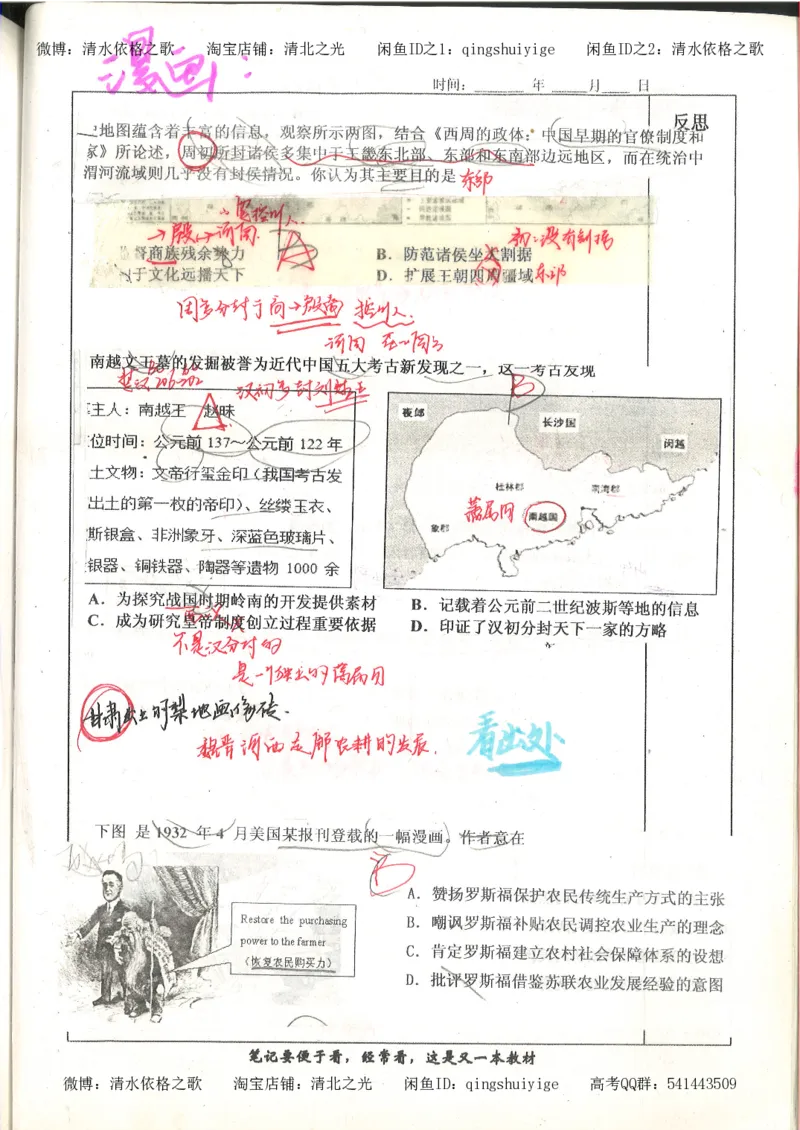 微博：清水依格之歌 淘宝店铺：清北之光 闲鱼ID之1：qingshuiyige 闲鱼ID之2：清水依格之歌
漫画：
时间：______ 年 _____月____ 日
反思
地图蕴含着丰富的信息，观察所示两图，结合《西周的政体：中国早期的官僚制度和
家》所论述，周初所封诸侯多集中于王畿东北部、东部和东南部边远地区，而在统治中
渭河流域则几乎没有封侯情况。你认为其主要目的是 东部
→殷↔河南
初：没有割据
督商族残余势力 B．防范诸侯坐大割据
于文化远播天下 D．扩展王朝四周疆域 东部
南越文王墓的发掘被誉为近代中国五大考古新发现之一，这一考古发现
B
汉初多封刘姓王
主人：南越王 赵眜
位时间：公元前 137～公元前 122 年
土文物：文帝行玺金印（我国考古发
出土的第一枚的帝印）、丝缕玉衣、
斯银盒、非洲象牙、深蓝色玻璃片、
银器、铜铁器、陶器等遗物 1000 余
夜郎
长沙国
闽越
桂林郡
南海郡
藩属国
南越国
象郡
A．为探究战国时期岭南的开发提供素材 B．记载着公元前二世纪波斯等地的信息
C．成为研究皇帝制度创立过程重要依据 D．印证了汉初分封天下一家的方略
不是汉分封的
是一个独立的藩属国
甘肃出土的犁地画像砖．
魏晋河西走廊农耕的发展．
看出处
下图 是 1932 年 4 月美国某报刊登载的一幅漫画。作者意在
B
Restore the purchasing
power to the farmer
（恢复农民购买力）
A．赞扬罗斯福保护农民传统生产方式的主张
B．嘲讽罗斯福补贴农民调控农业生产的理念
C．肯定罗斯福建立农村社会保障体系的设想
D．批评罗斯福借鉴苏联农业发展经验的意图
笔记要便于看，经常看，这是又一本教材
微博：清水依格之歌 淘宝店铺：清北之光 闲鱼ID：qingshuiyige 高考QQ群：541443509